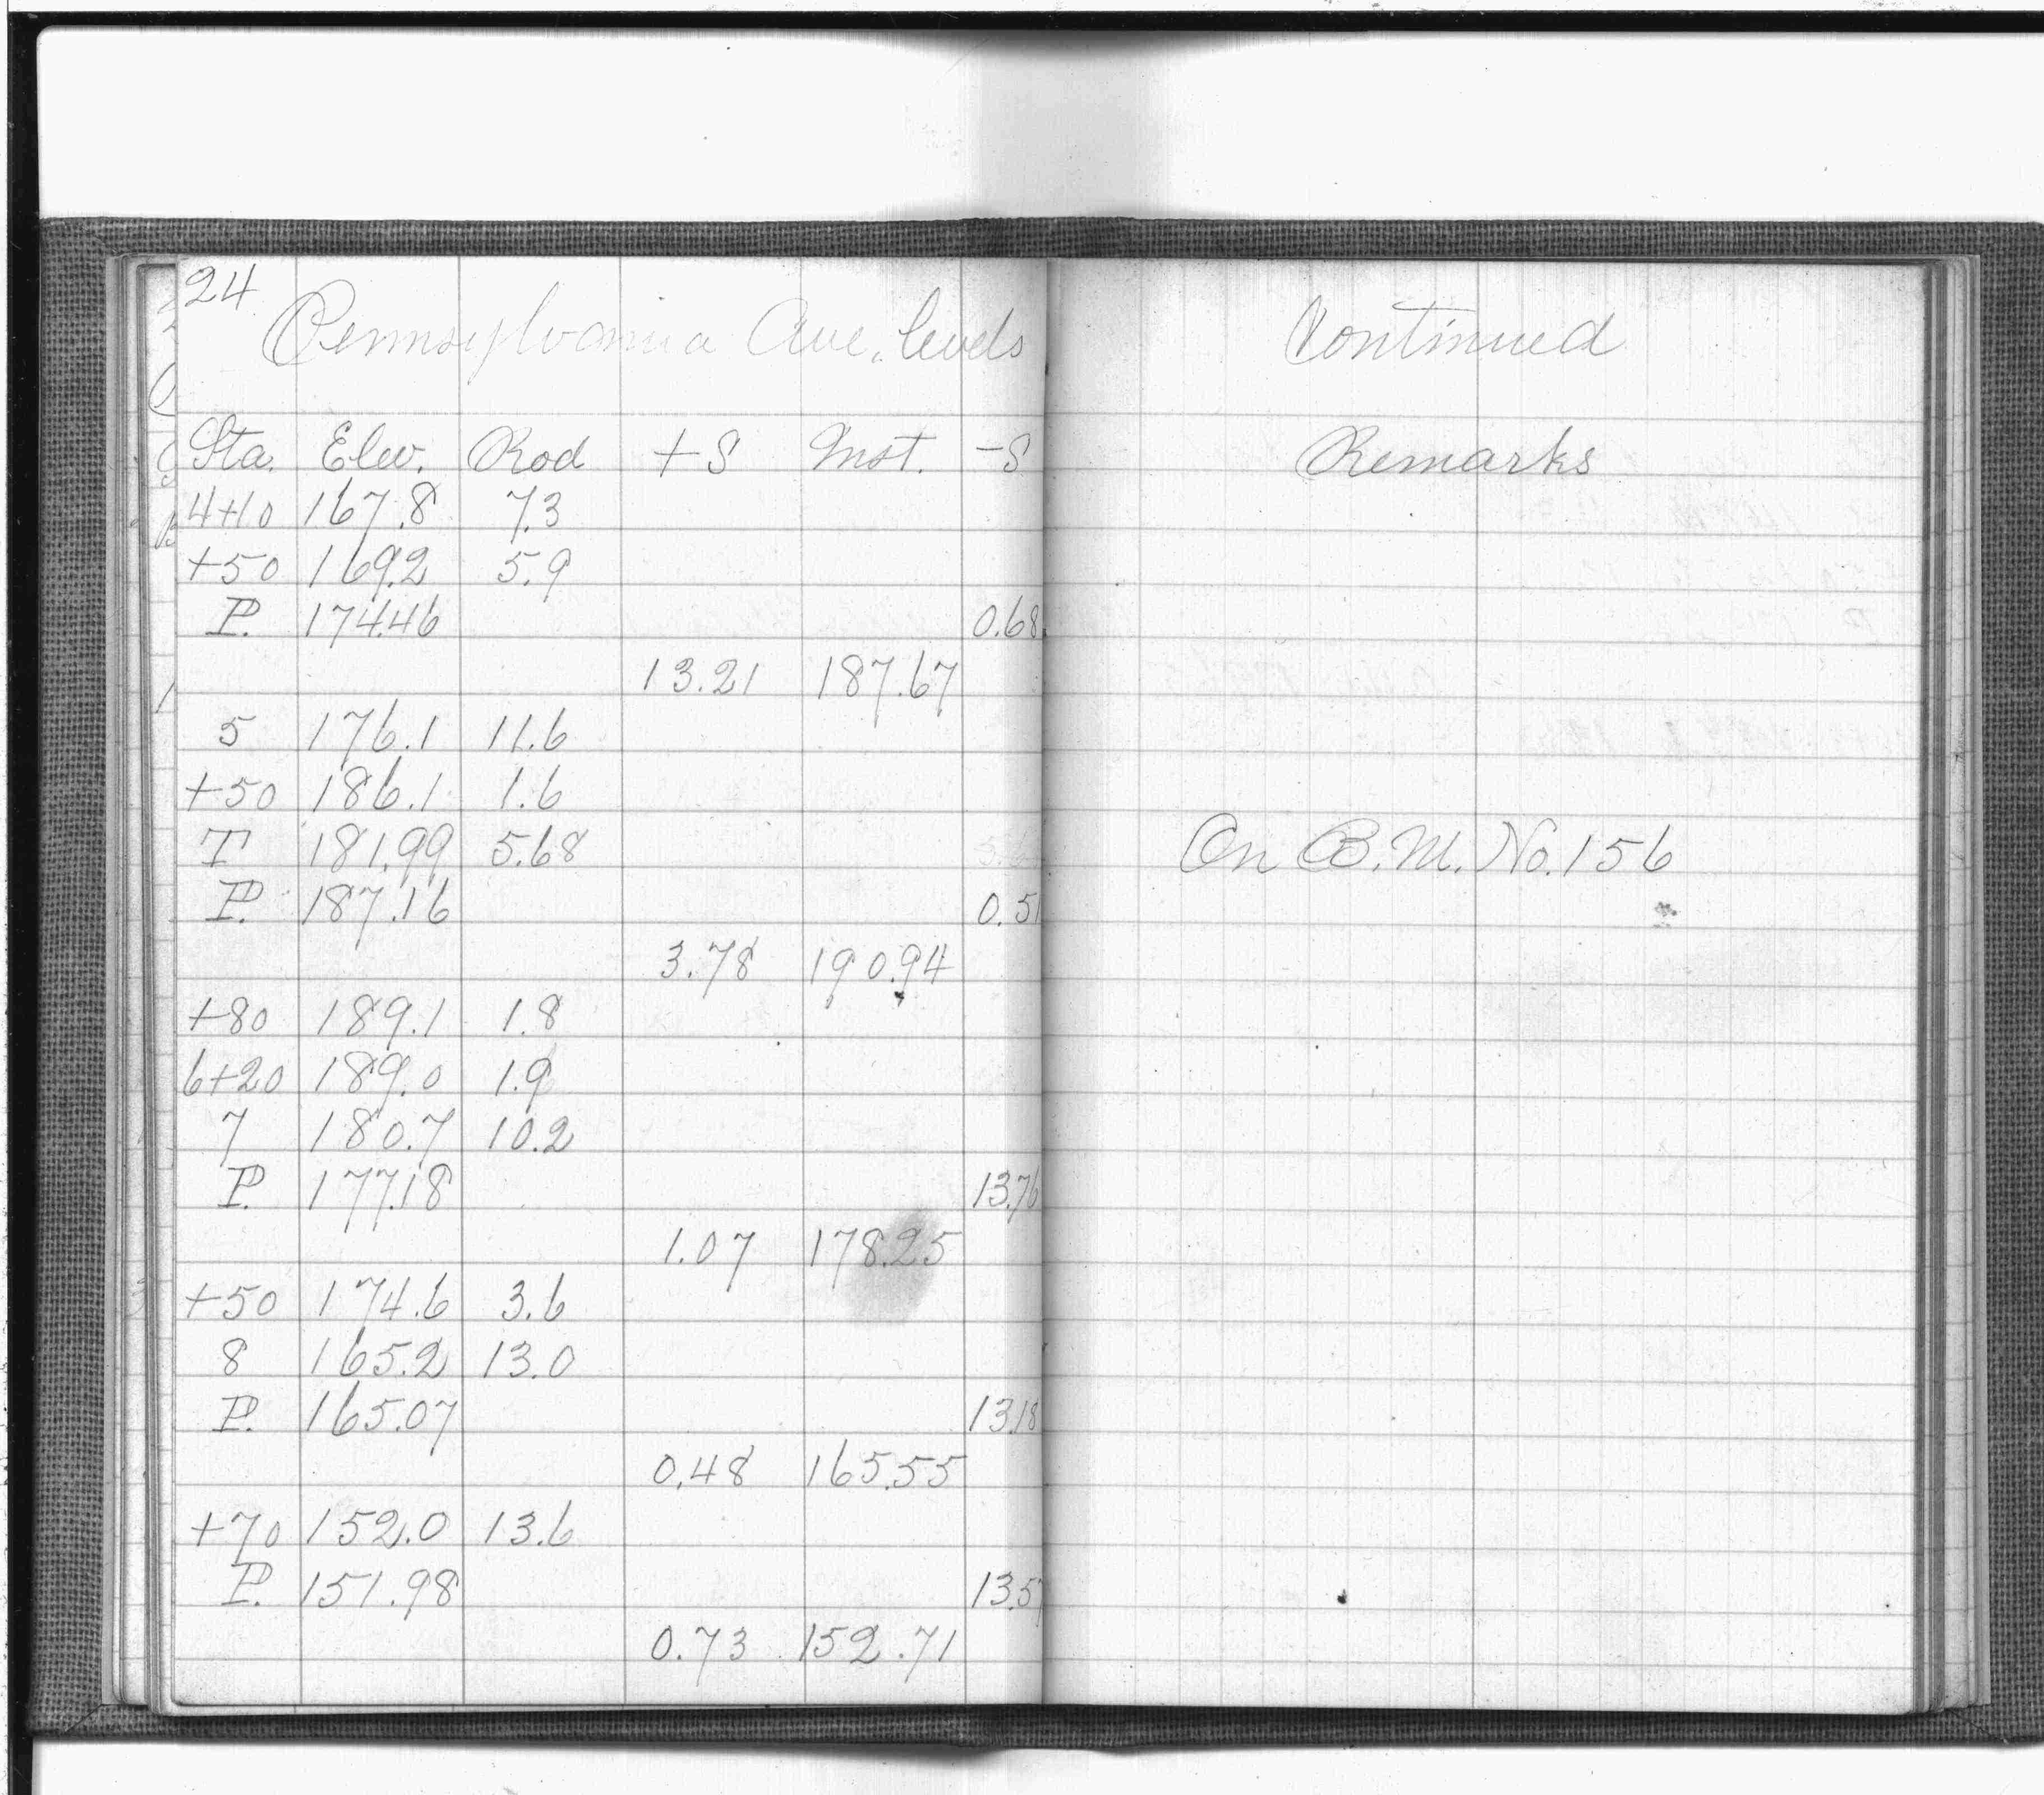 24
Pennsylvania Ave. levels Continued
Sta. Elev. Rod +S Inst. -S Remarks
4+10 167.8 7.3
+50 169.2 5.9
P. 174.46 0.68
13.21 187.67
5 176.1 11.6
+50 186.1 1.6
T 181.99 5.68 On B.M. No. 156
P. 187.16 0.51
3.78 190.94
+80 189.1 1.8
6+20 189.0 1.9
7 180.7 10.2
P. 177.18 13.76
1.07 178.25
+50 174.6 3.6
8 165.2 13.0
P. 165.07 13.18
0.48 165.55
+70 152.0 13.6
P. 151.98 13.57
0.73 152.71